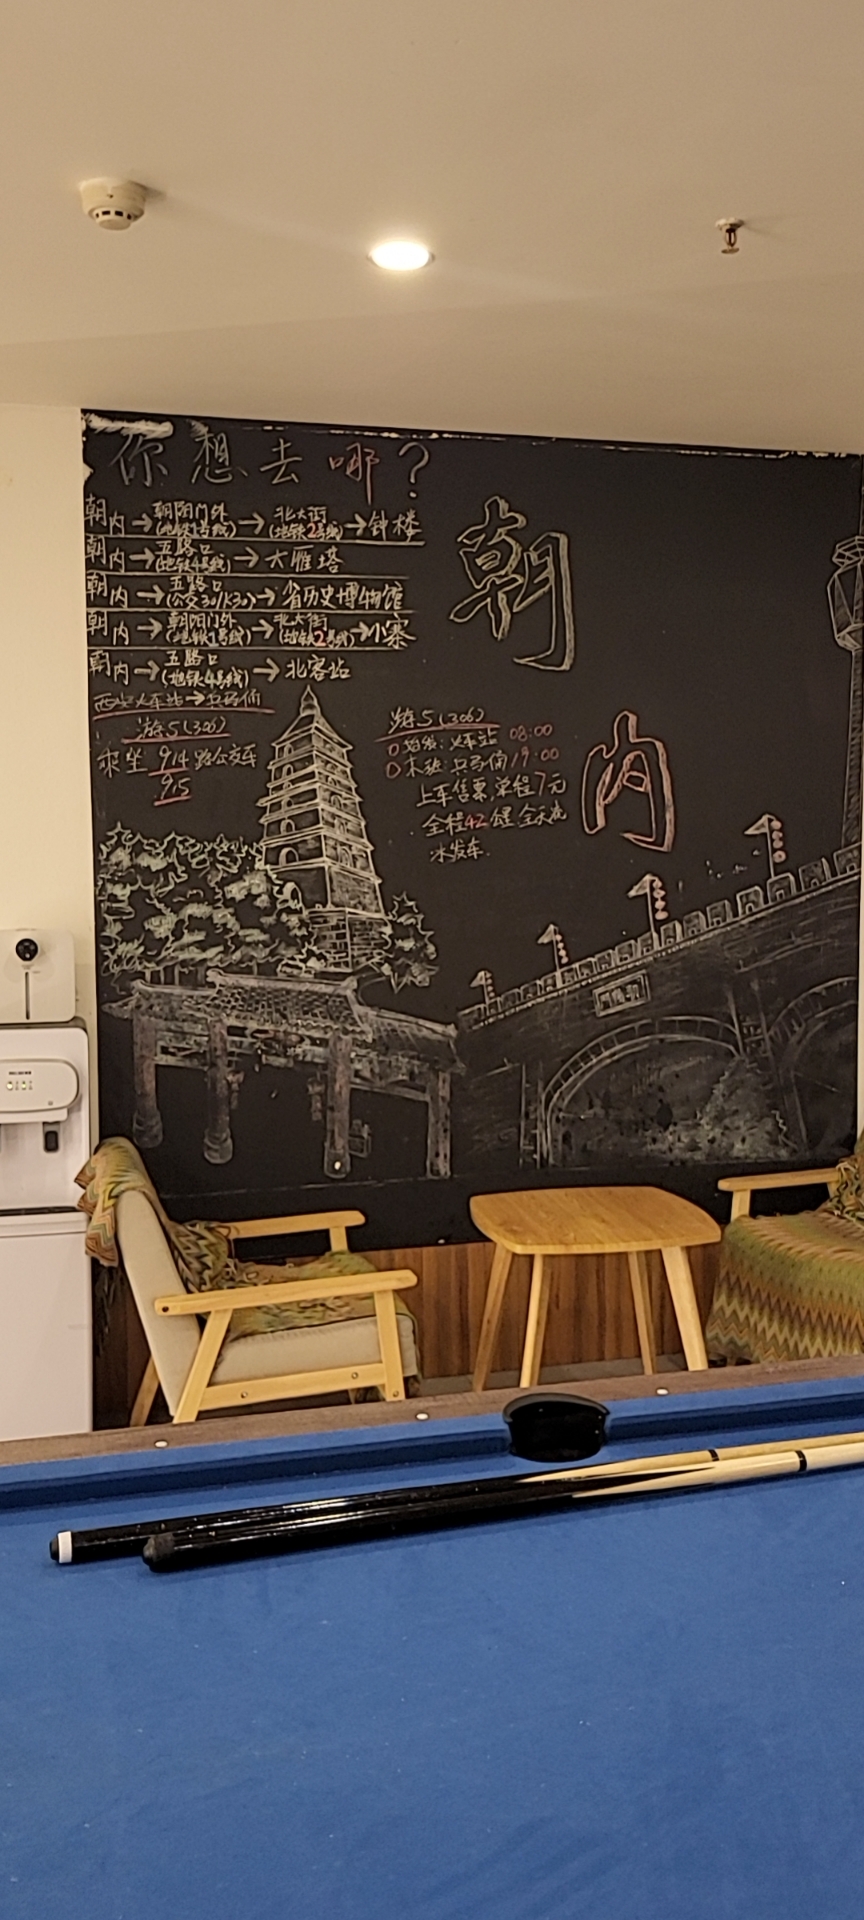 你想去哪？
朝内→朝阳门外(地铁1号线)→北大街(地铁2号线)→钟楼
朝内→五路口(地铁4号线)→大雁塔
朝内→五路口(公交30/K30)→省历史博物馆
朝内→朝阳门外(地铁1号线)→北大街(地铁2号线)→小寨
朝内→五路口(地铁4号线)→北客站
西安火车站→兵马俑
游5(306)
乘坐914路公交车
915
游5(306)
始发:火车站 08:00
末班:兵马俑 19:00
上车售票,单程7元
全程42
发车.
朝
内